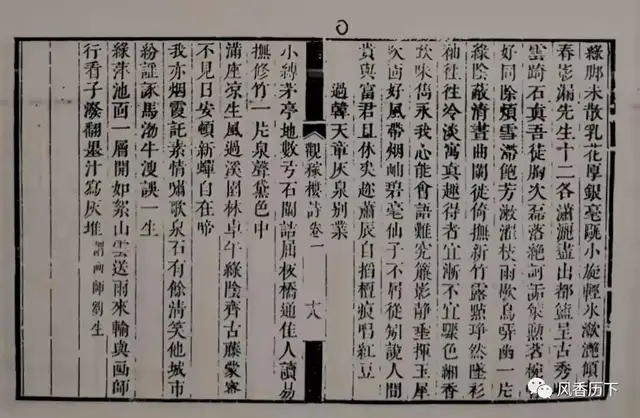 綠腳未散乳花厚銀毫甌小旋輕氷漱灔傾
春澎漏先生十二各瀟灑盡出都籃呈古秀
雲踦石真吾徒胸次磊落絕訶詬集勳茗椀
好同除煩雪滯飽芳漱濯枝雨歇鳥哢幽一片
綠陰蔽清晝曲闌徙倚撫新竹露點琤然墜衫
袖往往冷淡寓真趣得者宜漸不宜驟色細香
恬味雋永我心能會語難究簾影靜垂揮玉犀
齒好風帶烟岫碧毫仙子不屑從說人間
貴與富君且休矣趂蕭辰自搯檀痕唱紅豆
過韓天章灰泉別業
觀稼樓詩 卷一
十八
小縛茅亭地數弓石闌詰屈板橋通佳人讀易
撫修竹一片泉聲黛色中
滿座凉生風過溪園林卓午綠陰齊古藤蒙密
不見日安頓新蟬自在啼
我亦烟霞託素情嘯歌泉石有餘清笑他城市
紛誣啄馬勃牛溲誤一生
綠萍池面一層開如絮山雲送雨來輸與画師
行看子潑翻墨汁寫灰堆 謂画師劉生
风香历下